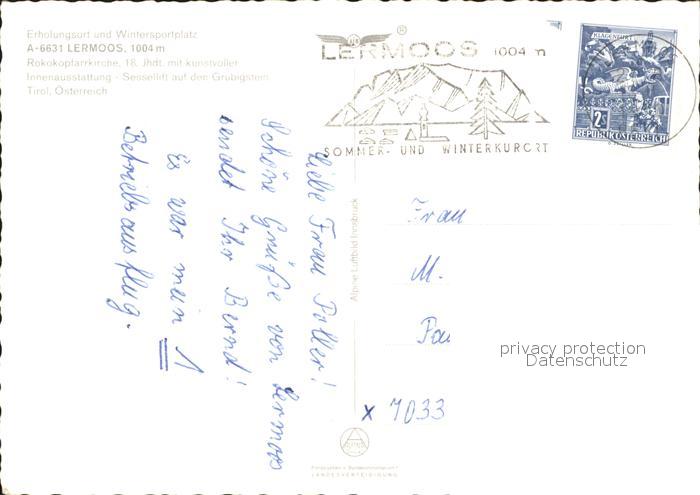 Erholungsort und Wintersportplatz
A-6631 LERMOOS, 1004 m
Rokokopfarrkirche, 18. Jhdt. mit kunstvoller
Innenausstattung - Sessellift auf den Grubigstein
Tirol, Österreich
LERMOOS 1004 m
SOMMER- UND WINTERKURORT
KLAGENFURT
2S
REPUBLIK ÖSTERREICH
Liebe Frau Poller!
Schöne Grüße von Lermoos
sendet Ihr Bernd!
Es war mein 1
Betriebsausflug.
Alpine Luftbild Innsbruck
Frau
M.
Pau
x 7033
privacy protection
Datenschutz
LANDESVERTEIDIGUNG